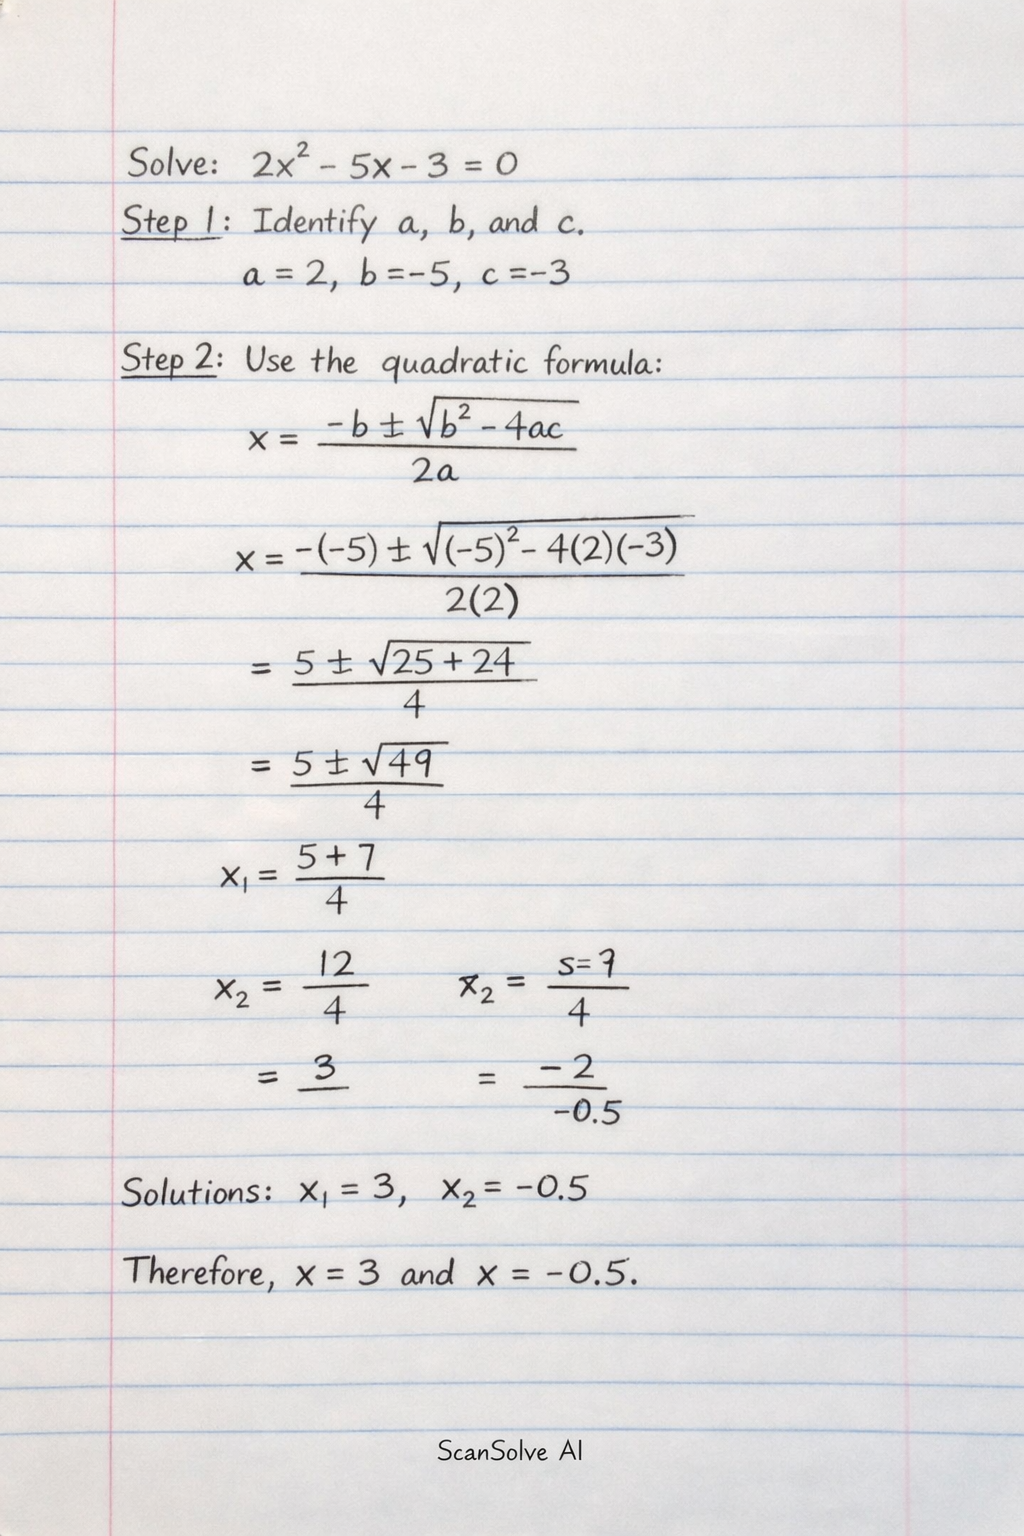 Solve: 2x² - 5x - 3 = 0
Step 1: Identify a, b, and c.
a = 2, b =-5, c =-3
Step 2: Use the quadratic formula:
x = (-b ± √(b² - 4ac)) / 2a
x = (-(-5) ± √((-5)² - 4(2)(-3))) / 2(2)
= (5 ± √(25 + 24)) / 4
= (5 ± √49) / 4
x₁ = (5 + 7) / 4
x₂ = 12 / 4    x₂ = s=7 / 4
= 3    = -2 / -0.5
Solutions: x₁ = 3, x₂ = -0.5
Therefore, x = 3 and x = -0.5.
ScanSolve AI